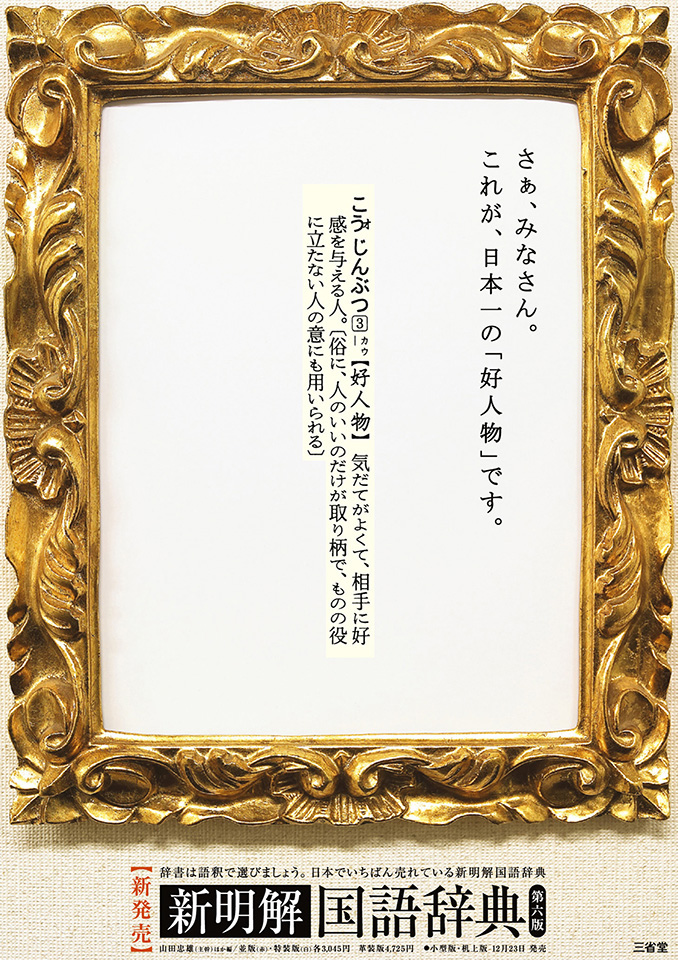 さぁ、みなさん。
これが、日本一の「好人物」です。
こうオじんぶつ③カウ―【好人物】 気だてがよくて、相手に好
感を与える人。〔俗に、人のいいのだけが取り柄で、ものの役
に立たない人の意にも用いられる〕
【新発売】
辞書は語釈で選びましょう。日本でいちばん売れている新明解国語辞典
新明解国語辞典 第六版
山田忠雄(主幹)ほか編/並版(赤)・特装版(白)各3,045円 革装版4,725円 ●小型版・机上版 12月23日 発売
三省堂